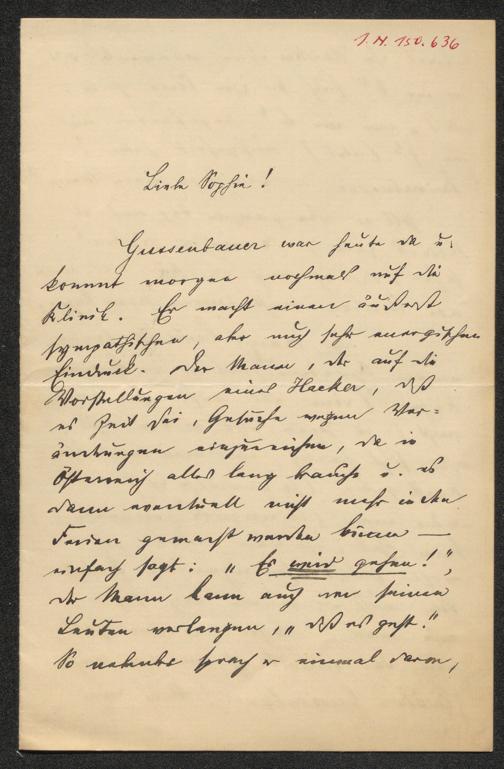 I. N. 150.636
Liebe Sophie!
Gussenbauer war heute da u.
kommt morgen nochmals auf die
Klinik. Er macht einen äußerst
sympathischen, aber auch sehr energischen
Eindruck. Der Mann, der auf die
Vorstellungen eines Hacker, daß
es Zeit sei, Gesuche wegen Ver-
änderungen einzureichen, da in
Österreich alles lang brauche u. es
dann eventuell nicht mehr in den
Ferien gemacht werden könne —
einfach sagt: „Es wird gehen!“,
der Mann kann auch von seinen
Leuten verlangen, „daß es geht.“
So sprach er einmal davon,